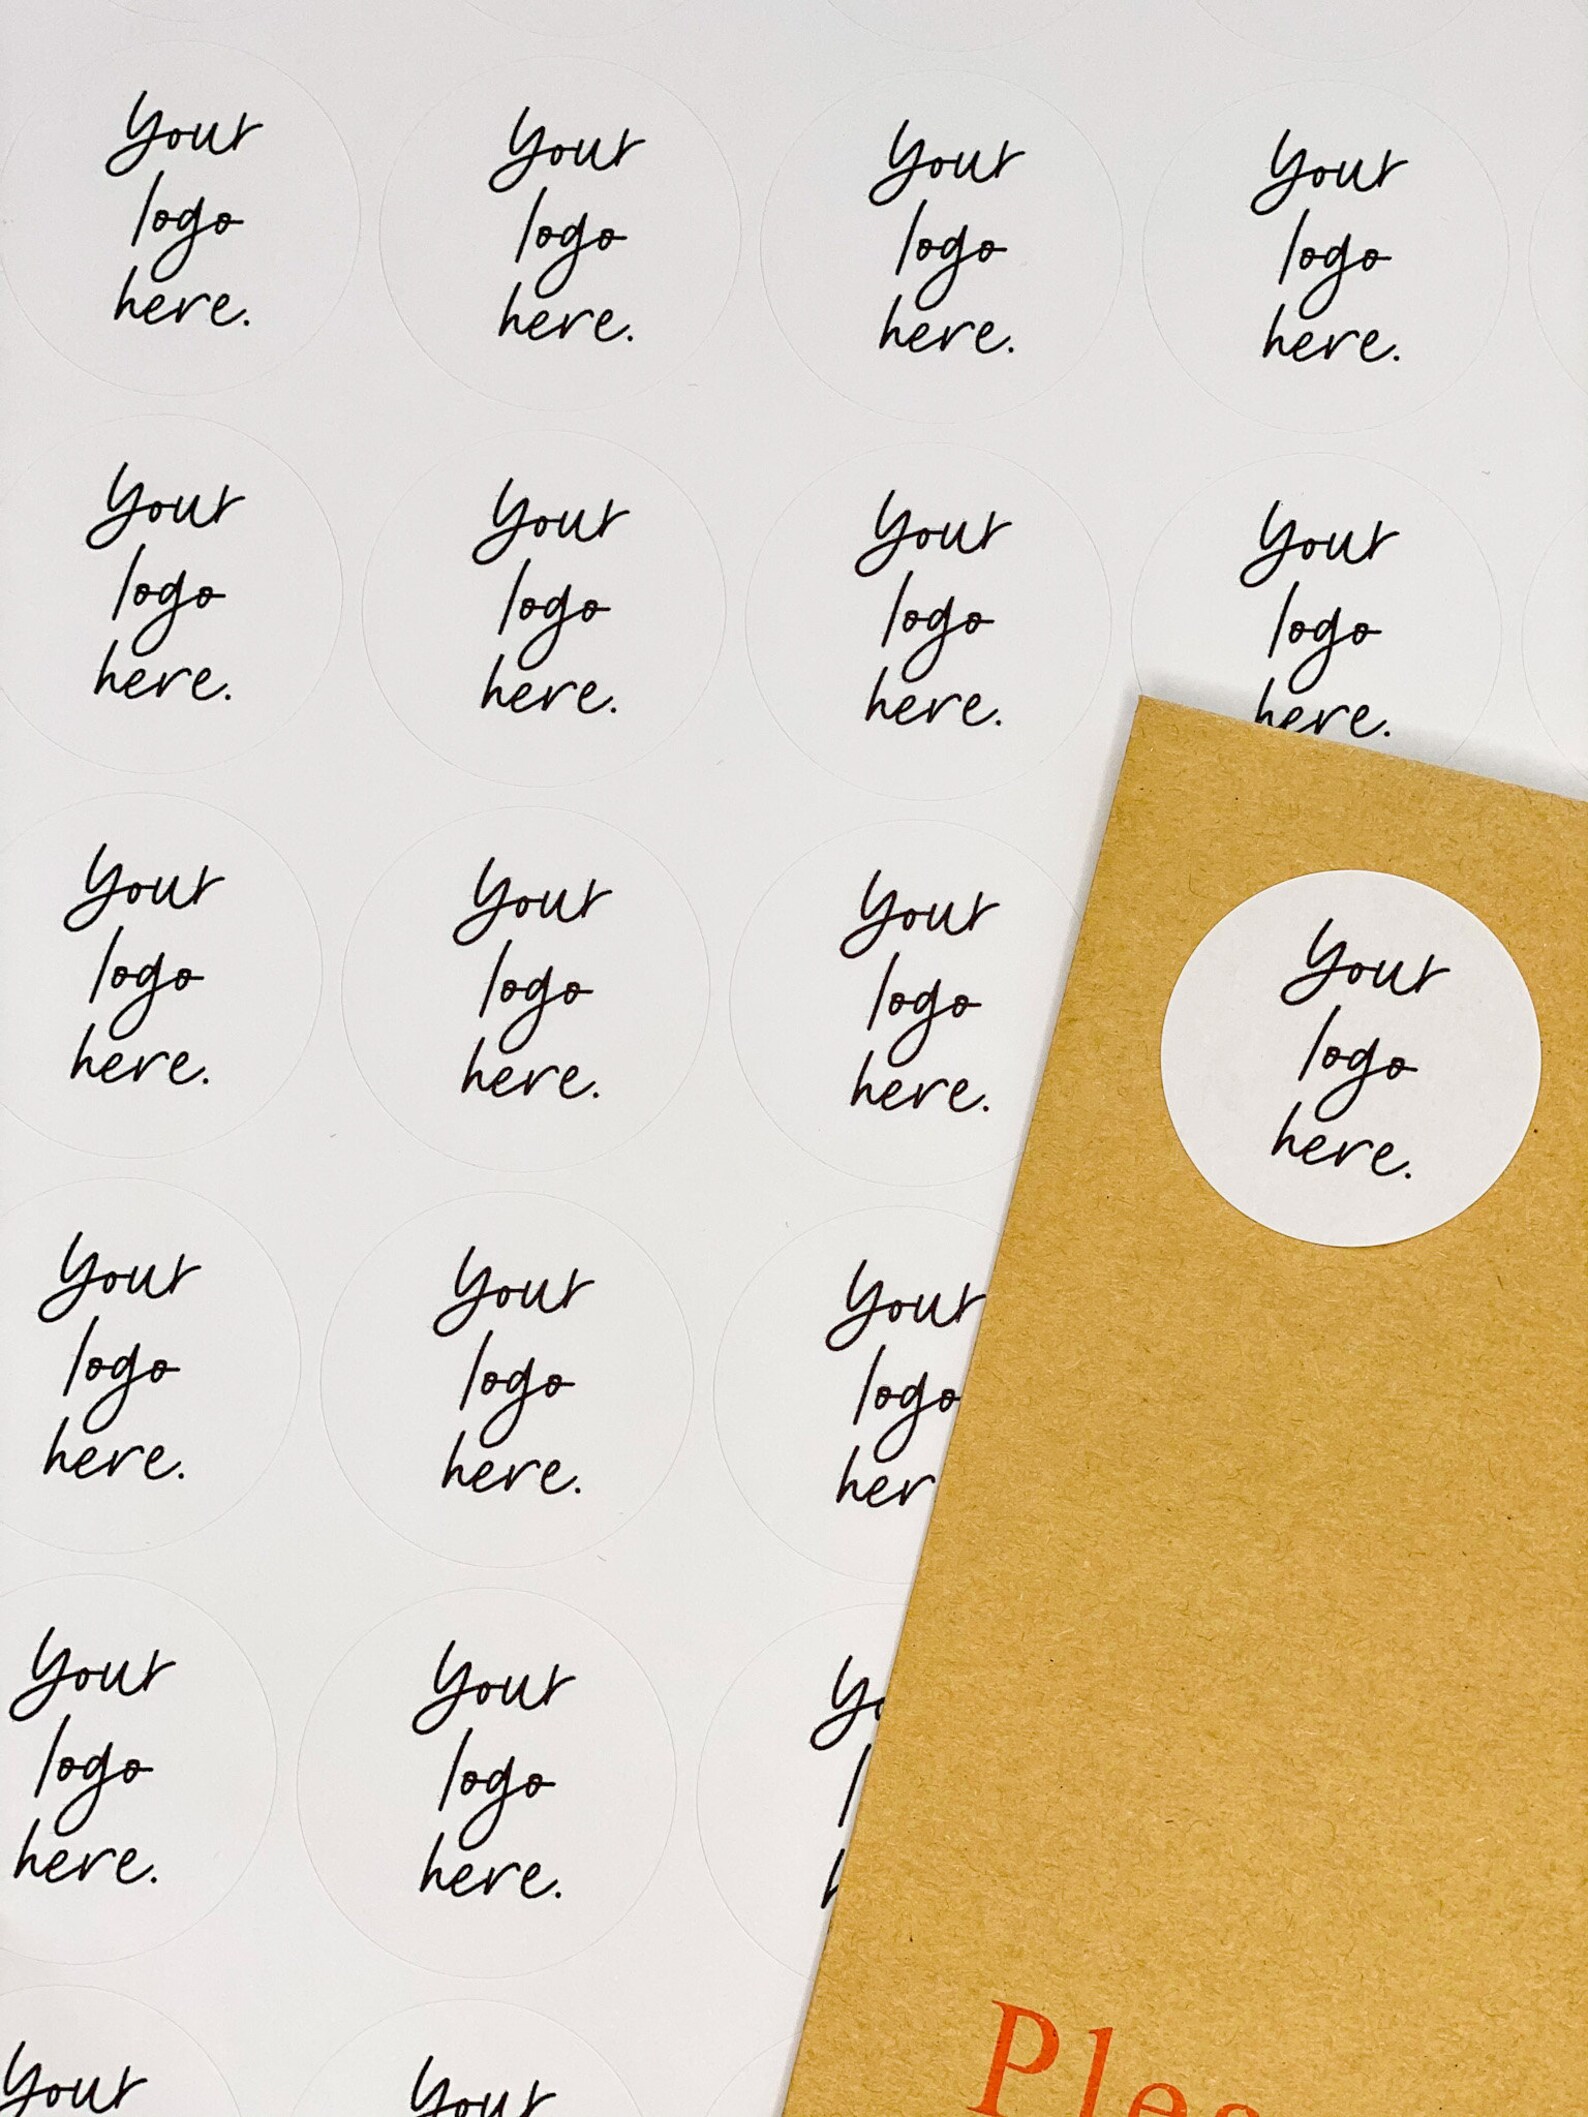 your
logo
here.
your
logo
here.
your
logo
here.
your
logo
here.
your
logo
here.
your
logo
here.
your
logo
here.
your
logo
here.
your
logo
here.
your
logo
here.
your
logo
here.
your
logo
here.
your
logo
here.
your
logo
here.
your
logo
her
your
logo
here.
your
logo
here.
yo
l
h
your
your
Ples